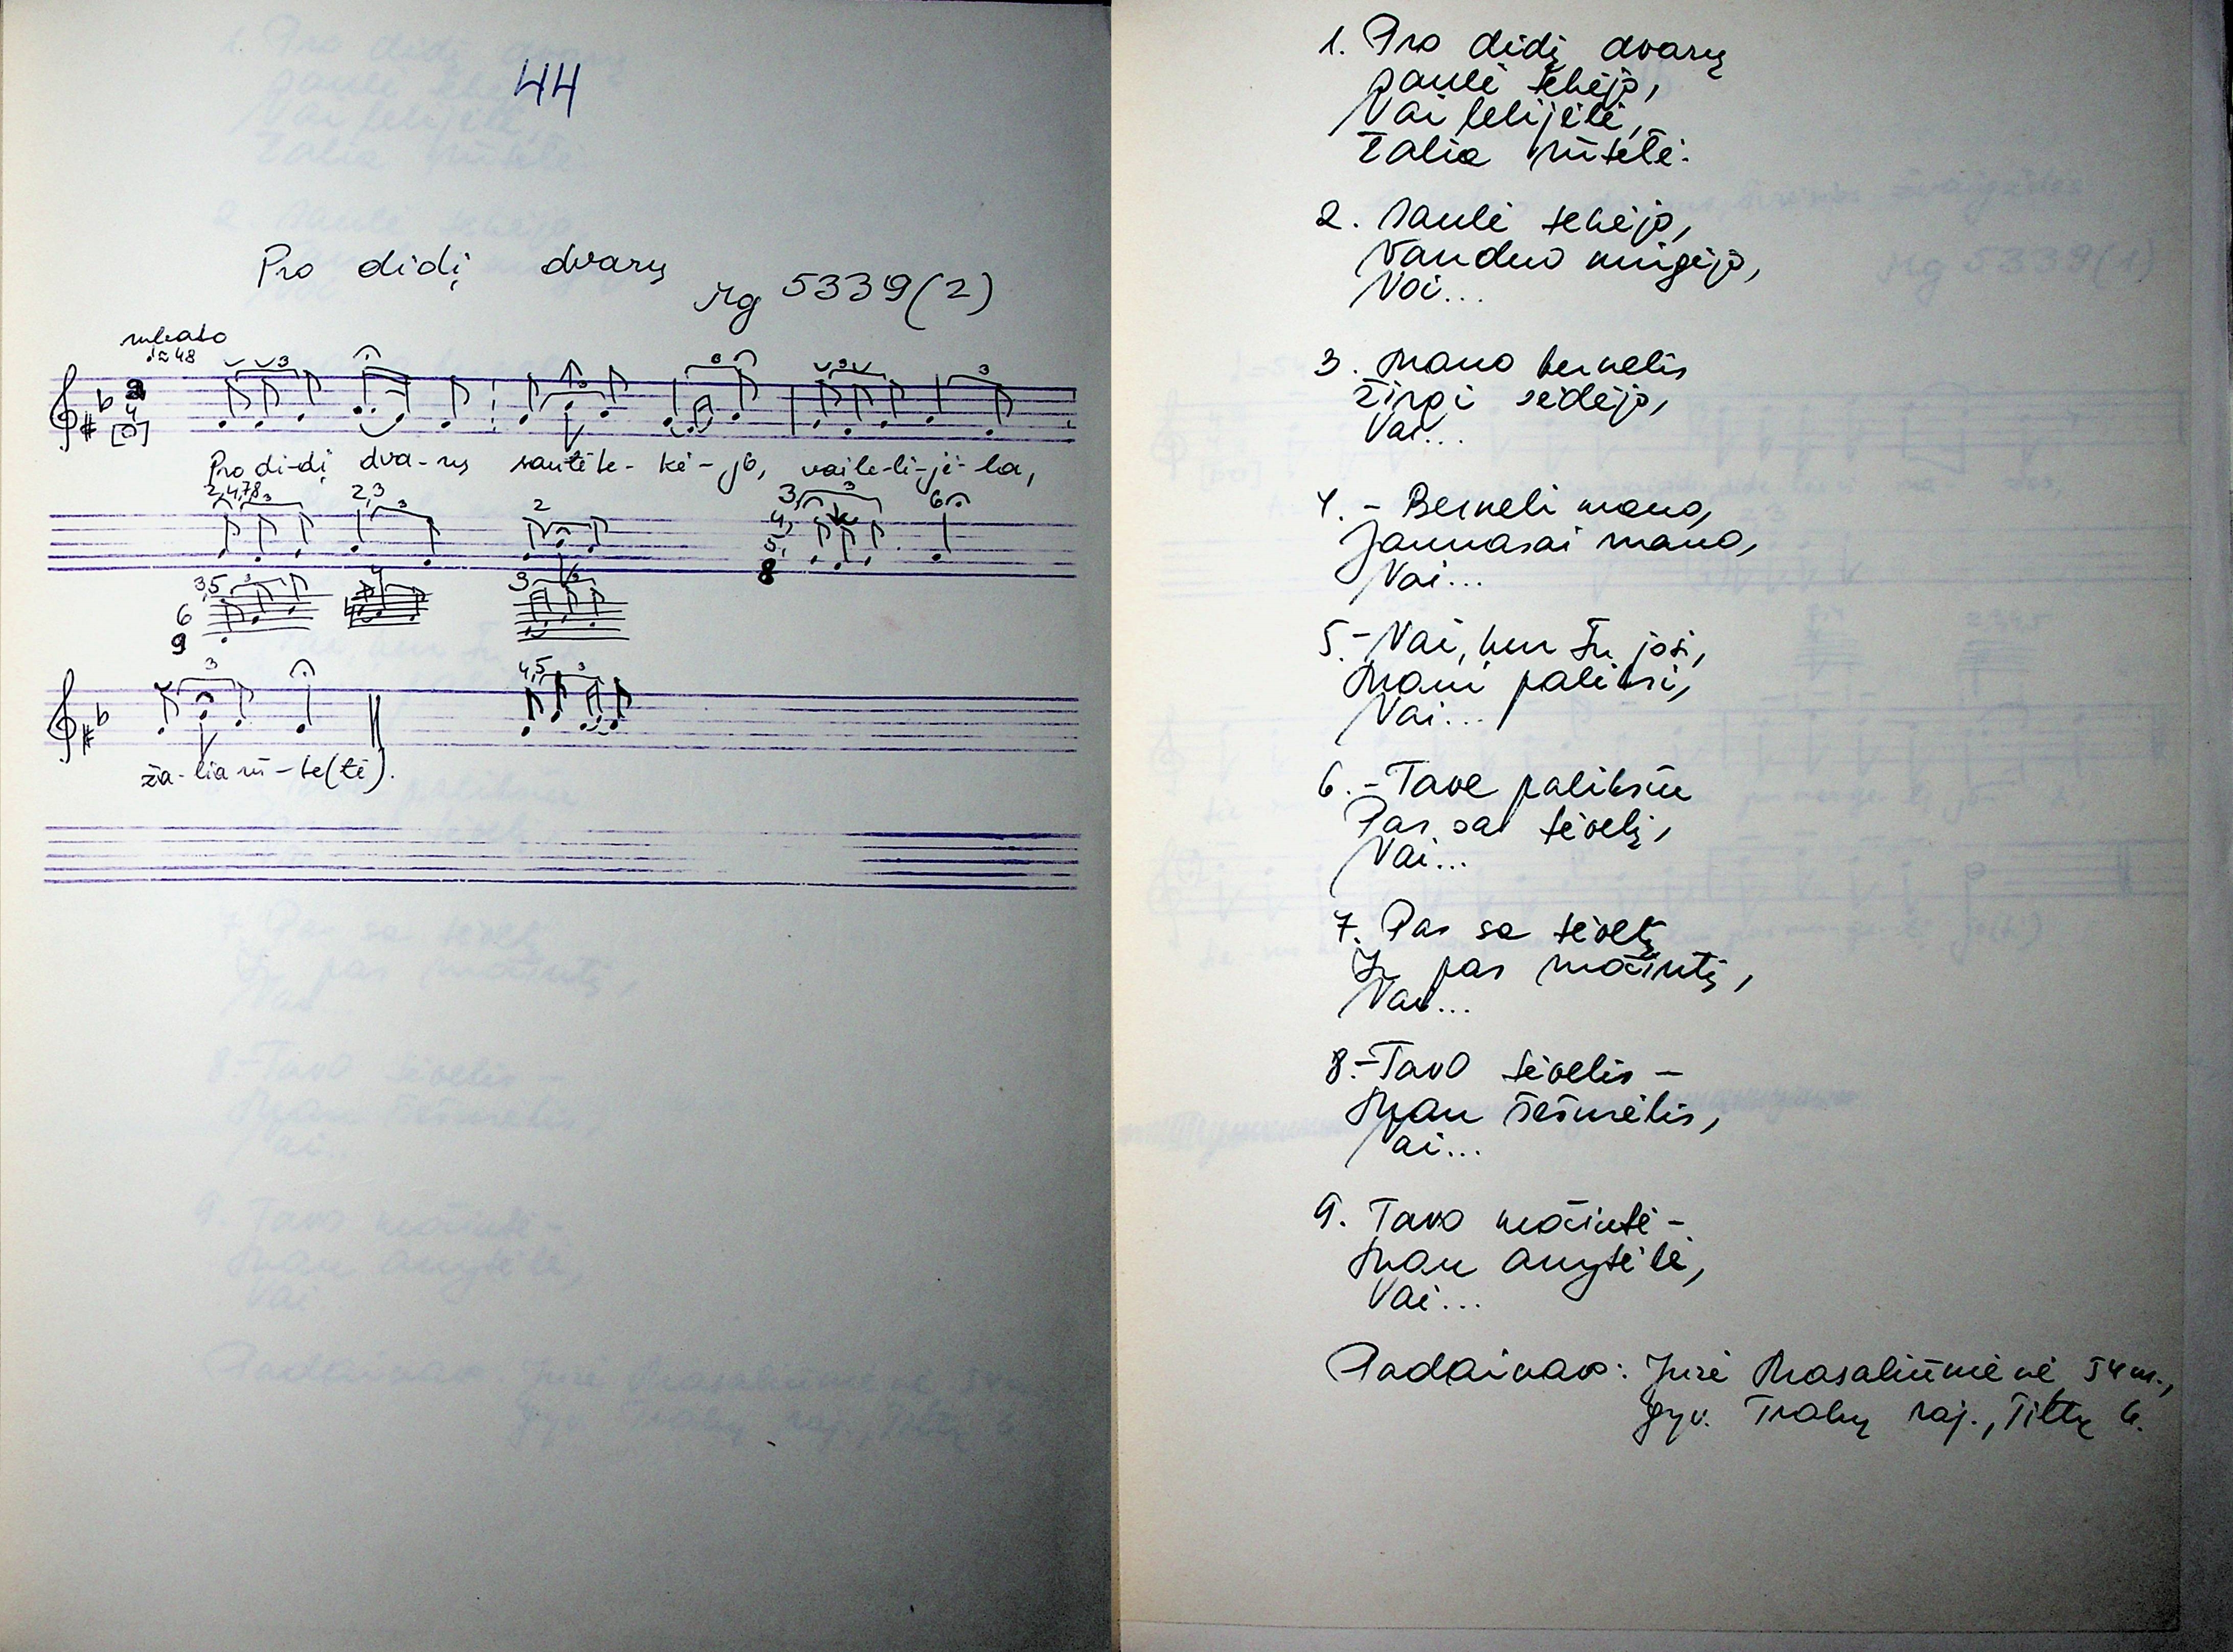 44
Pro didį dvarų
Mg 5339(2)
rubato
♩≈48
Pro di-dį dva-rų saulė te-kė-jō, vai le-li-jė-la,
2,4,7,8 3 2,3 3 2 3, 3 6
4,
5,
8
3,5 3 4 3
6
9
3 4,5 3
ža-lia rū-te(lė).
1. Pro didį dvarų
saulė tekėjo,
Vai lelijėlė,
Žalia rūtelė.
2. Saulė tekėjo,
Vanduo mirgėjo,
Vai...
3. Mano bernelis
žirgį sėdėjo,
Vai...
4. - Berneli mano,
Jaunasai mano,
Vai...
5. - Vai, kur tu josi,
Mani paliksi,
Vai...
6. - Tave paliksiu
Pas sa tėvelį,
Vai...
7. Pas sa tėvelį
Ir pas močiutį,
Vai...
8. - Tavo tėvelis -
Man šešurėlis,
Vai...
9. Tavo močiutė -
Man anytėlė,
Vai...
Padainavo: Juzė Masaliūnienė 54 m.,
gyv. Trakų raj., Tiltų k.